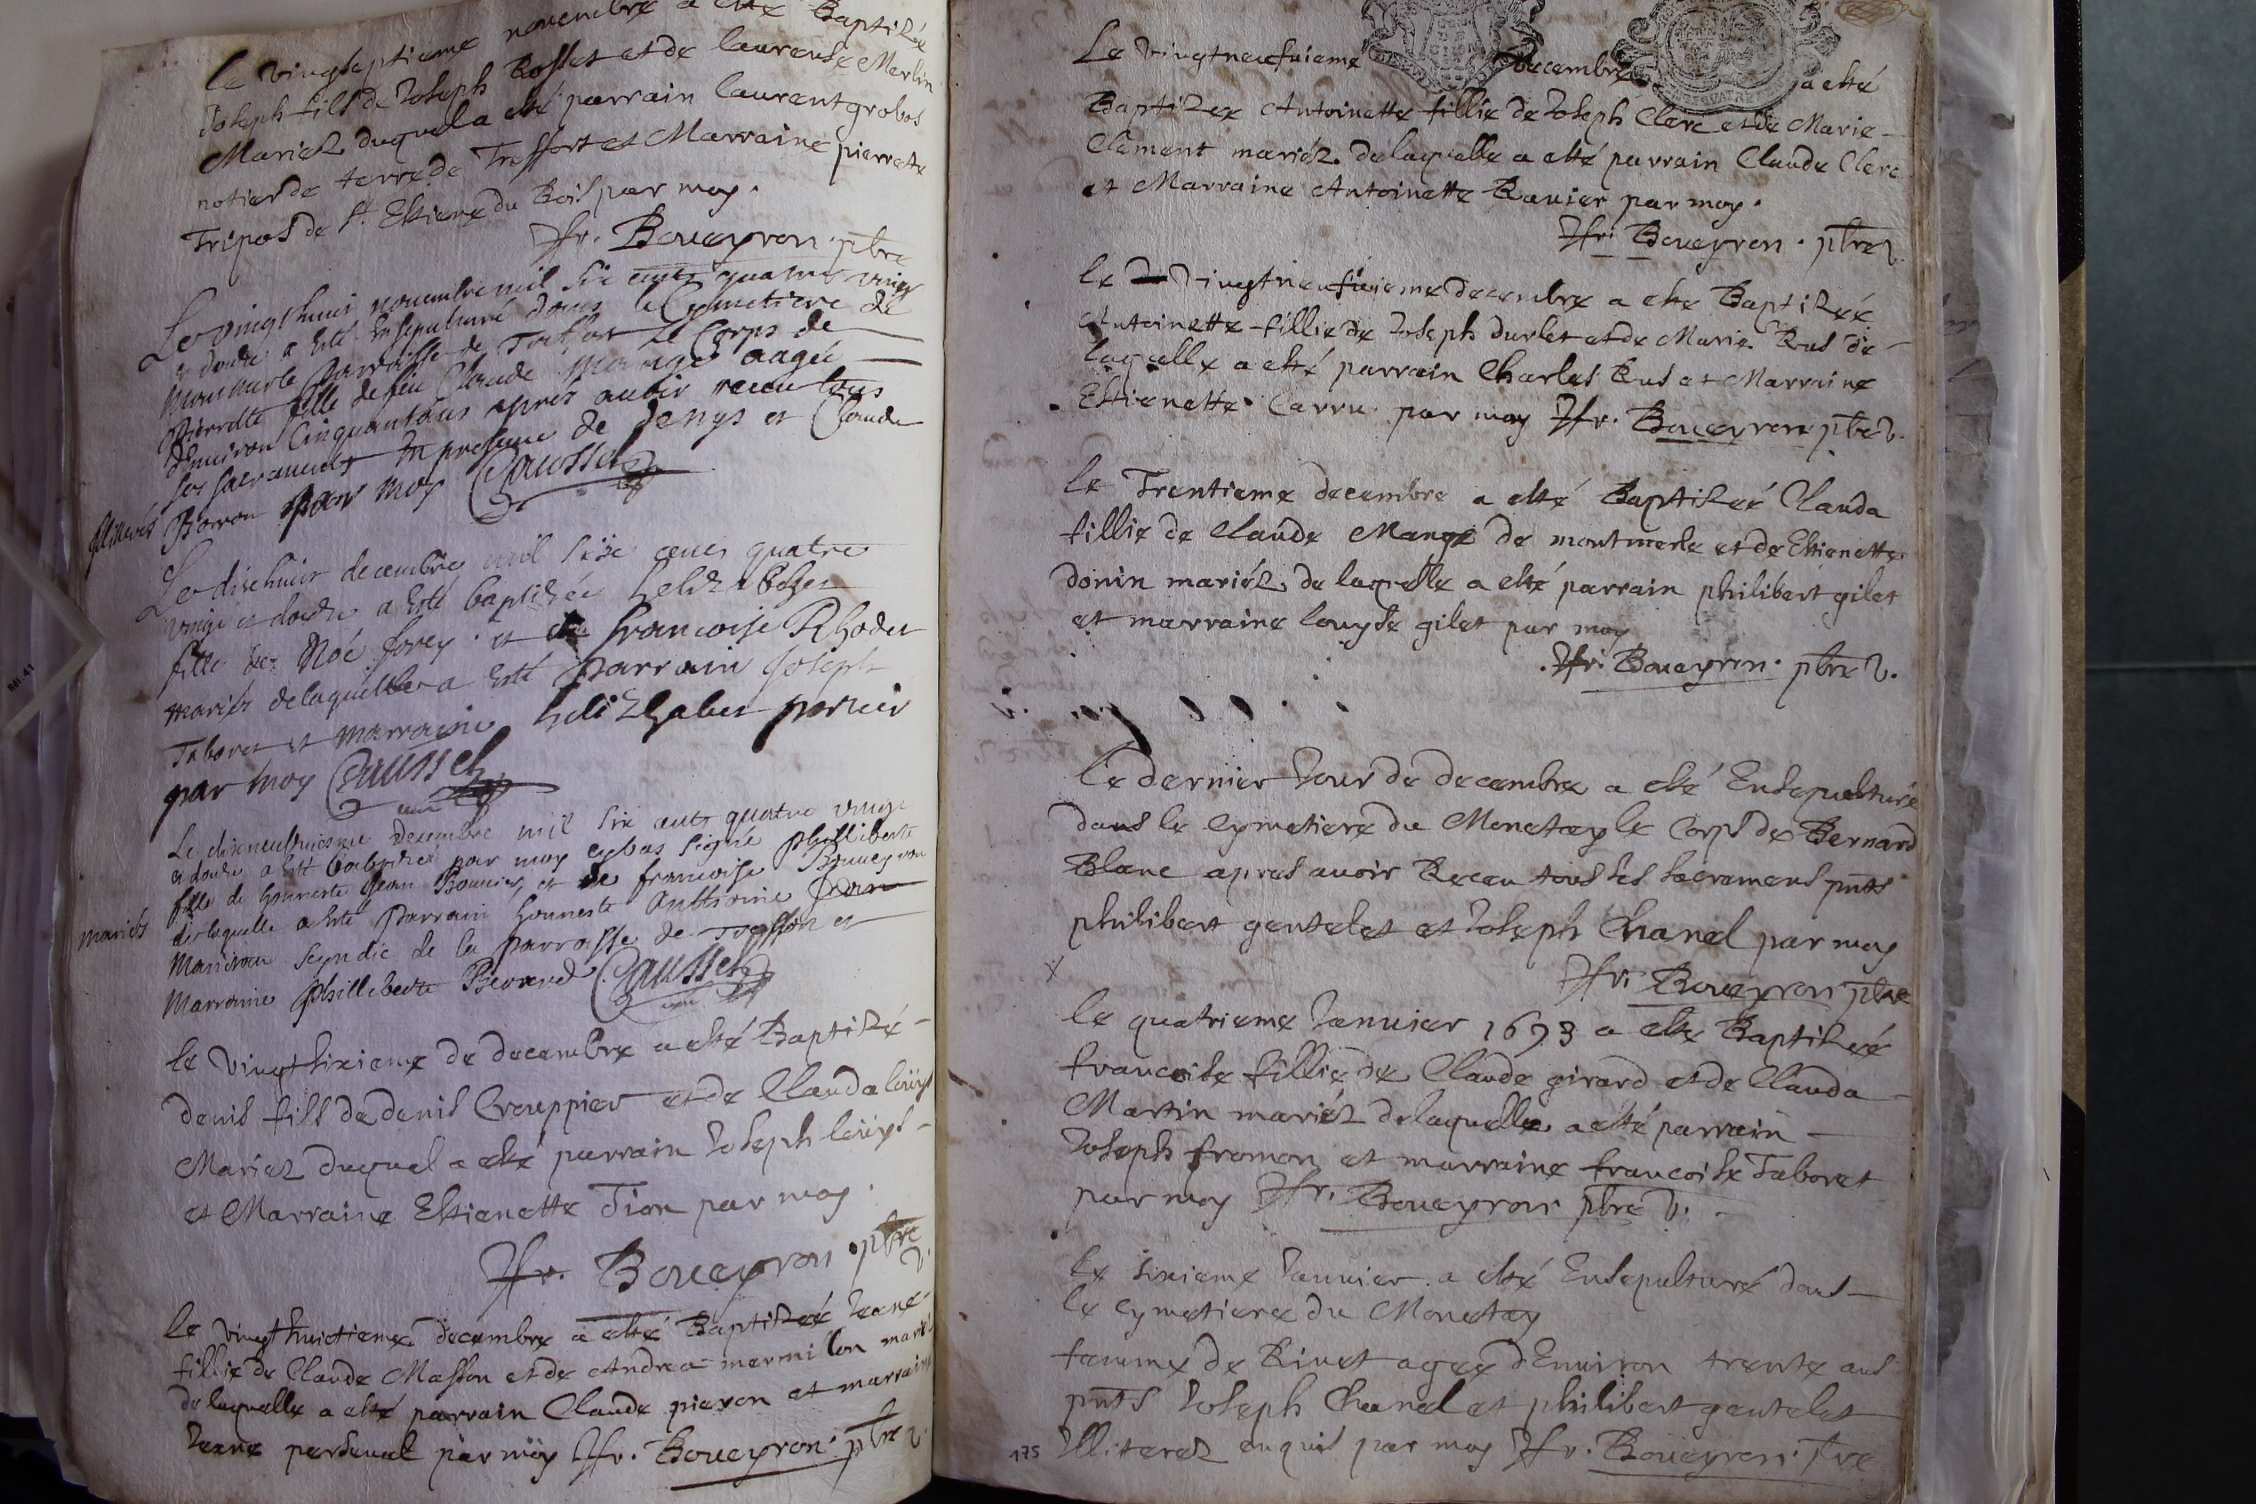 Le vingseptieme novembre a esté Baptizée
Joseph fils de Joseph Rosset et de laurense Merlin
Mariez duquel a esté parrain laurent grobos
notier de terre de Treffort et Marraine pierrette
Tripos de St. Estiene du Bois par moy.
Ffr. Boueyron. ptre
Le vingt huit nouembre mil six cents quatre vingt
et douze a Esté Ensepulturé dans le Cymetiere de
Montmerle Parroisse de Trefort le Corps de
Pierrette fille de feu Claude Mange aagée
d'enuiron Cinquant ans apres auoir receu tous
ses sacrements En presence de denys et Claude
Borron par moy Caussel
Le dixhuit decembre mil six cens quatre
vingt et douze a Esté baptizée helizabeher
fille de Noé forey et de francoise Rhodet
mariés de laquelle a Esté parrain Joseph
Taboret et marraine helizhabet perrier
par moy Caussel
Le dixneufuiesme decembre mil six cents quatre vingt
et douze a Esté baptizée par moy cybas signé Philliberte
fille de honneste Jean Bouuier, et de francoise Boueyron
mariés de laquelle a Esté Parrain honneste Anthoine Jean
Manivau scyndic de la parroisse de Treffort et
Marraine Philliberte Berrard Caussel
le vingtsixieme de decembre a esté Baptizé
denis fils de denis Crouppier et de Clauda lüys
Mariez duquel a esté parrain Joseph lüys
et Marraine Estienette Tion par moy.
Ffr. Boueyron. ptre v.
le vingthuictieme decembre a esté Baptizée Jeane
fillie de Claude Masson et de Andrea mermilon mariéz
de laquelle a esté parrain Claude pieron et marraine
Jeane perseual par moy Ffr. Boueyron. ptre v.
Le vingtneufuieme decembre a esté
Baptizee Antoinette fillie de Joseph Clerc et de Marie
Clement mariéz. de laquelle a esté parrain Claude Clerc
et Marraine Antoinette Rauier par moy.
Ffr. Boueyron. ptre v.
le vingtneufuieme decembre a esté Baptizée
Antoinette fillie de Joseph durlet et de Marie Rus de
laquelle a esté parrain Charles Rus et Marraine
Estienette Carru par moy Ffr. Boueyron ptre v.
le Trentieme decembre a esté Baptizée Clauda
fillie de Claude Mange de montmerle et de Estienette
donin mariéz de laquelle a esté parrain philibert gilet
et marraine louyse gilet par moy
Ffr. Boueyron. ptre v.
le dernier Jour de decembre a esté Ensepulturé
dans le cymetiere du Monetay le corps de Bernard
Blanc apres auoir Receu tous ses sacremens pnts
philibert gentelet et Joseph Chanel par moy
Ffr. Boueyron ptre
le quatrieme Januier 1693 a esté Baptizée
francoise fillie de Claude girard et de Clauda
Martin mariéz de laquelle a esté parrain
Joseph fromon et marraine francoise Taboret
par moy Ffr. Boueyron ptre v.
le sixieme Januier a esté Ensepulturé dans
le cymetiere du Monetay
famme de Riuet agee d'Enuiron trente ans
pnts Joseph Chanel et philibert gentelet
Illiterez enquis par moy Ffr. Boueyron. ptre
175